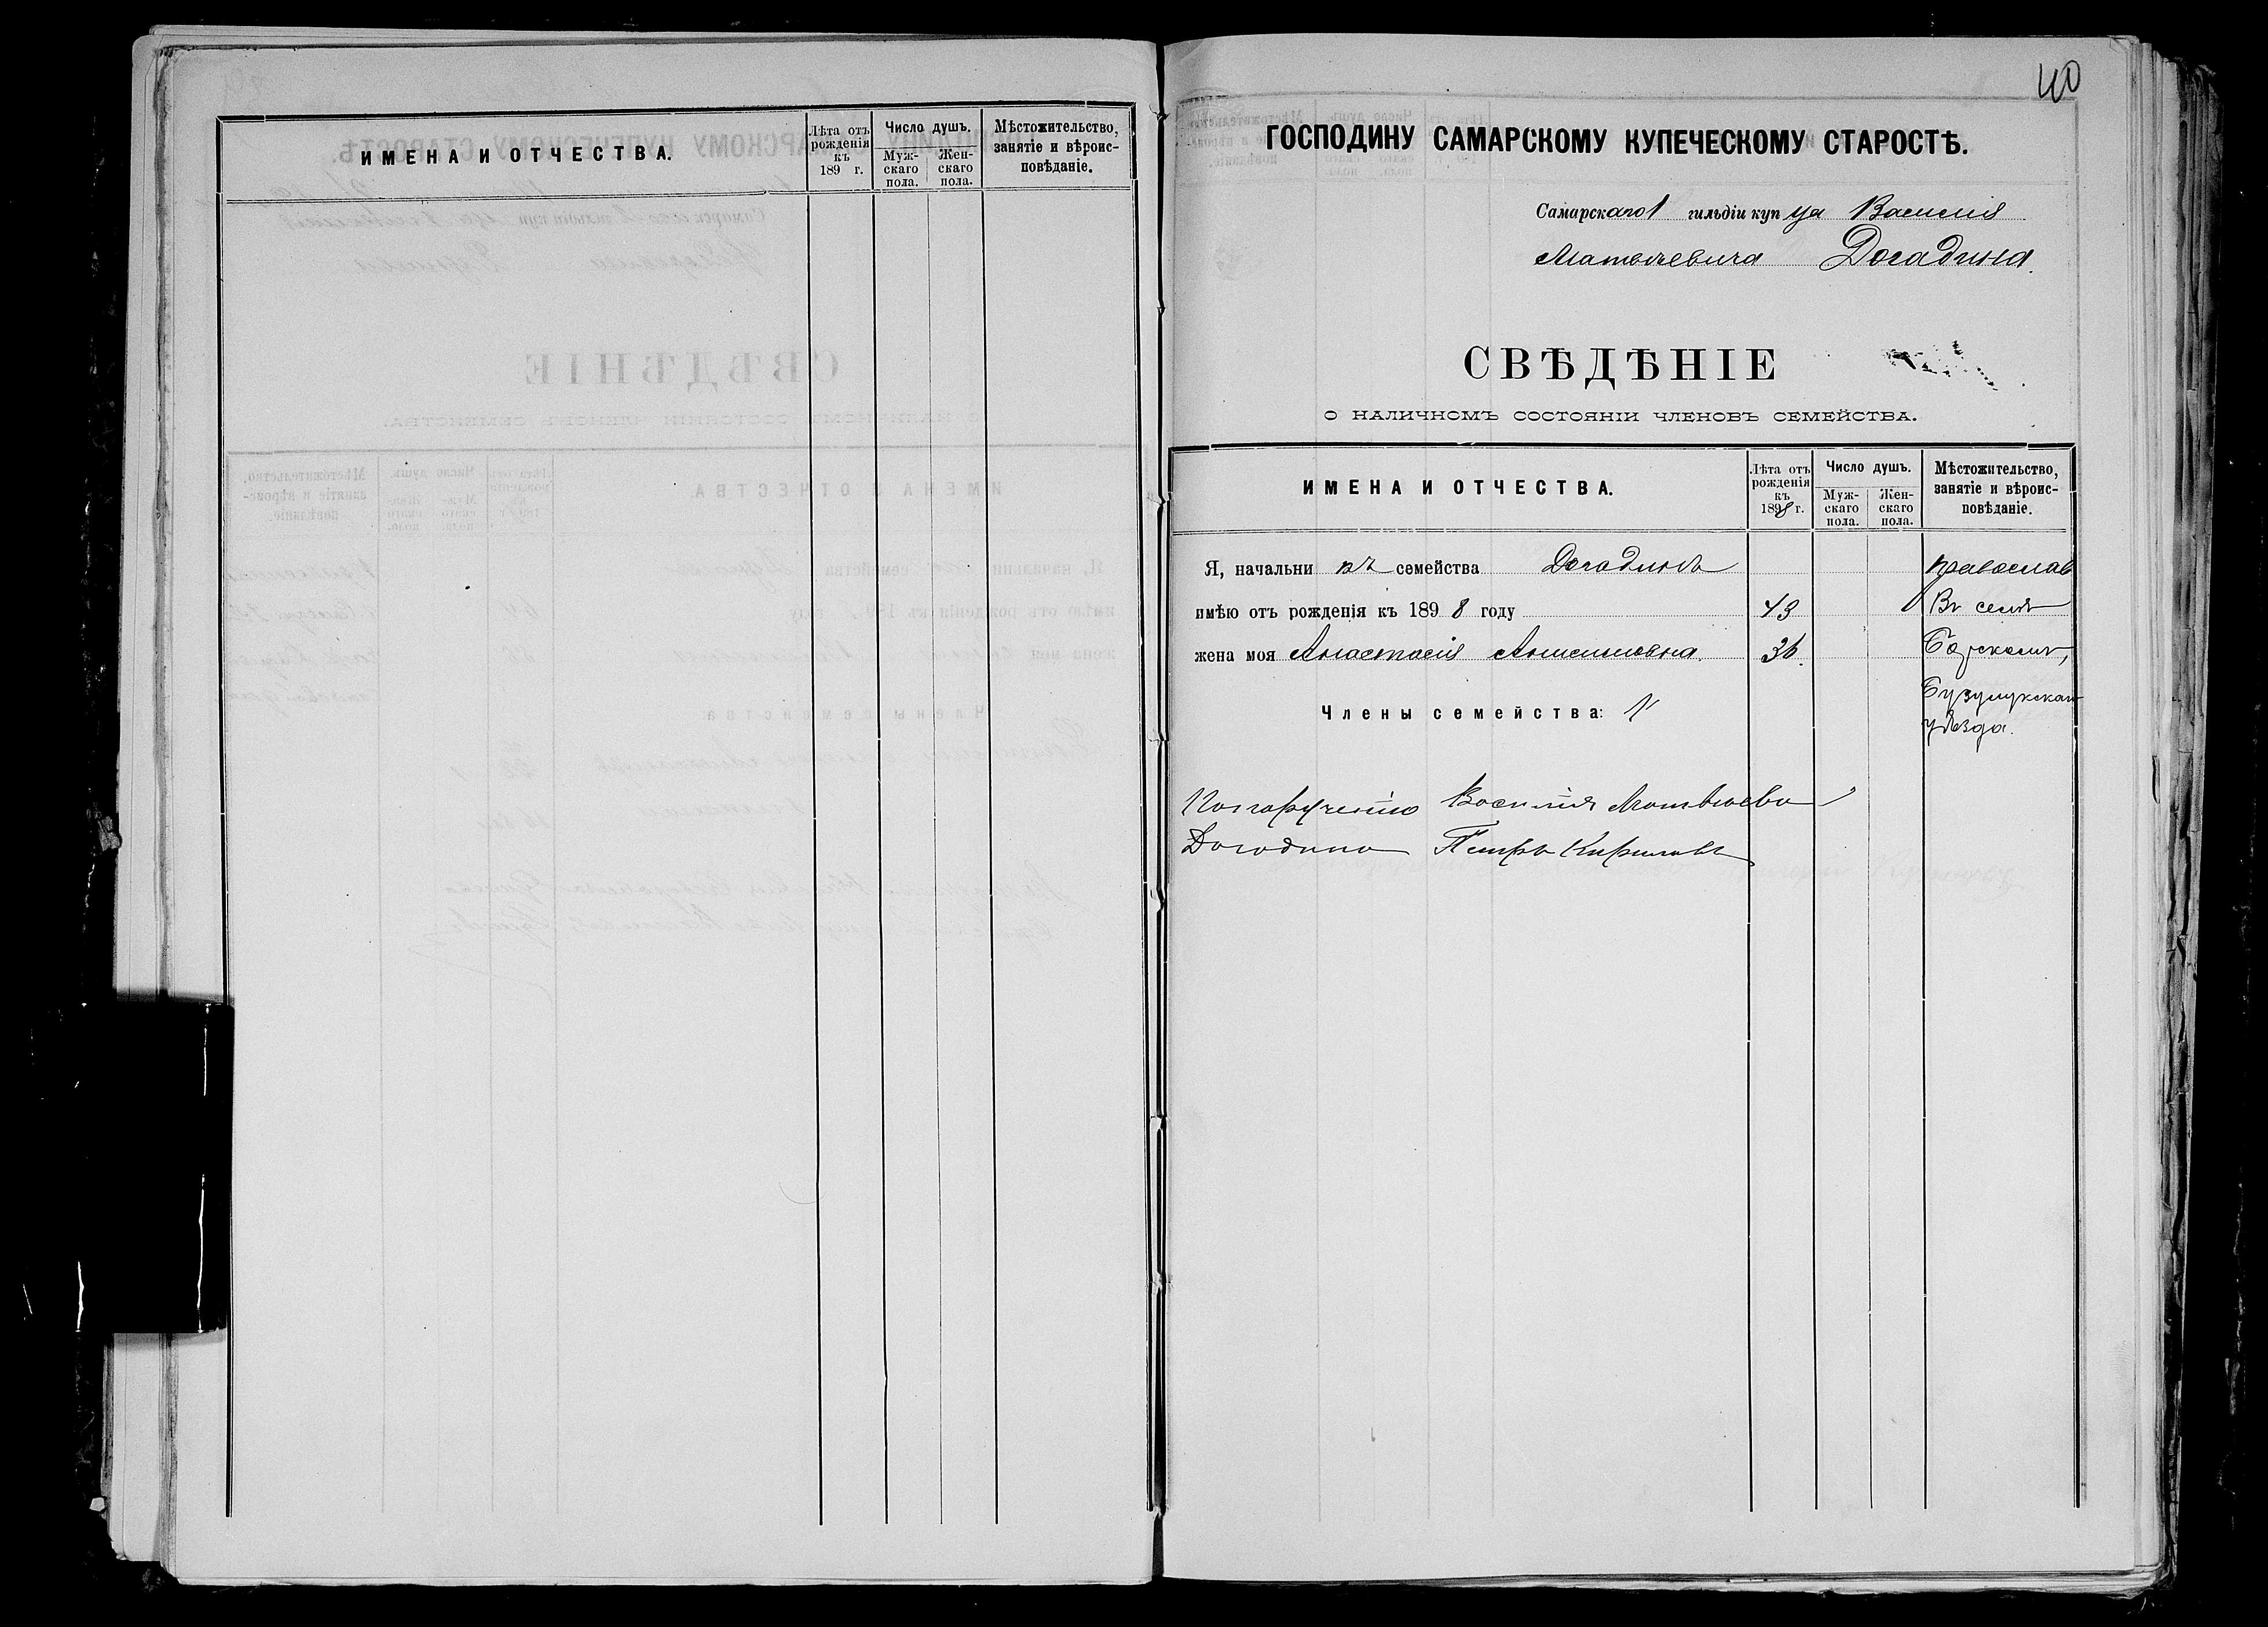 ИМЕНА И ОТЧЕСТВА.
Лѣта отъ рожденія къ 189 г.
Число душъ.
Мужскаго пола.
Женскаго пола.
Мѣстожительство, занятіе и вѣроисповѣданіе.
40
ГОСПОДИНУ САМАРСКОМУ КУПЕЧЕСКОМУ СТАРОСТѢ.
Самарскаго 1 гильдіи купца Василія
Матвѣевича Догадина.
СВѢДѢНІЕ
О НАЛИЧНОМЪ СОСТОЯНІИ ЧЛЕНОВЪ СЕМЕЙСТВА.
ИМЕНА И ОТЧЕСТВА.
Лѣта отъ рожденія къ 1898 г.
Число душъ.
Мужскаго пола.
Женскаго пола.
Мѣстожительство, занятіе и вѣроисповѣданіе.
Я, начальникъ семейства Догадинъ православ
имѣю отъ рожденія къ 1898 году 43 Въ селѣ
жена моя Анастасія Анисимовна. 36. Борскомъ,
Члены семейства: Бузулукскаго
уѣзда.
По порученію Василія Матвѣева
Догадина Петръ Кириловъ